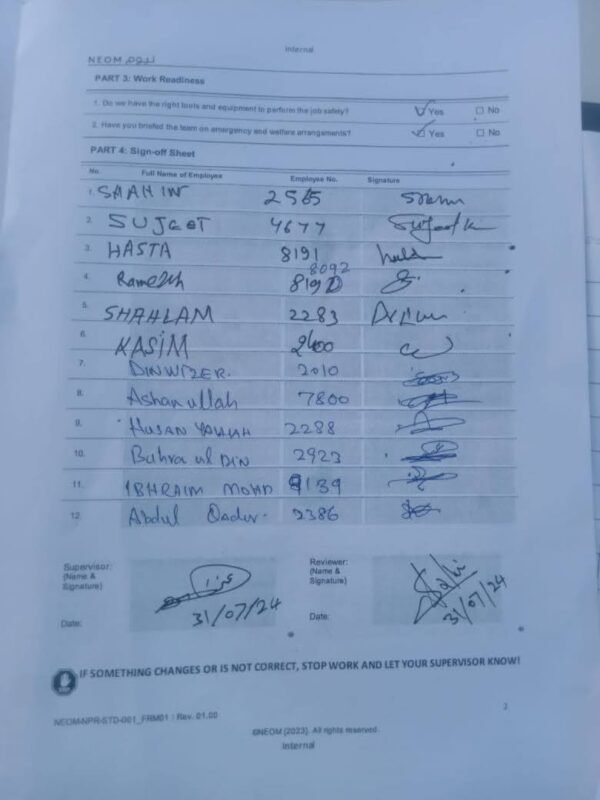 Internal
NEOM نيوم
PART 3: Work Readiness
1. Do we have the right tools and equipment to perform the job safely? Yes No
2. Have you briefed the team on emergency and welfare arrangements? Yes No
PART 4: Sign-off Sheet
No. Full Name of Employee Employee No. Signature
1. SAAHIN 2565
2. SUJEET 4677 Sujeet k
3. HASTA 8191
8092
4. Ramesh
5. SHAHLAM 2283
6. KASIM 2400
7. DINWIZER. 2010
8. Ashanullah 7800
9. HUSAN 2288
10. Bahra ul DIN 2923
11. IBHRAIM MOHD 9139
12. Abdul Qadir. 2386
Supervisor: Reviewer:
(Name & (Name &
Signature) Signature)
Date: 31/07/24 Date: 31/07/24
IF SOMETHING CHANGES OR IS NOT CORRECT, STOP WORK AND LET YOUR SUPERVISOR KNOW!
NEOM-NPR-STD-001_FRM01 : Rev. 01.00
©NEOM (2023). All rights reserved.
Internal